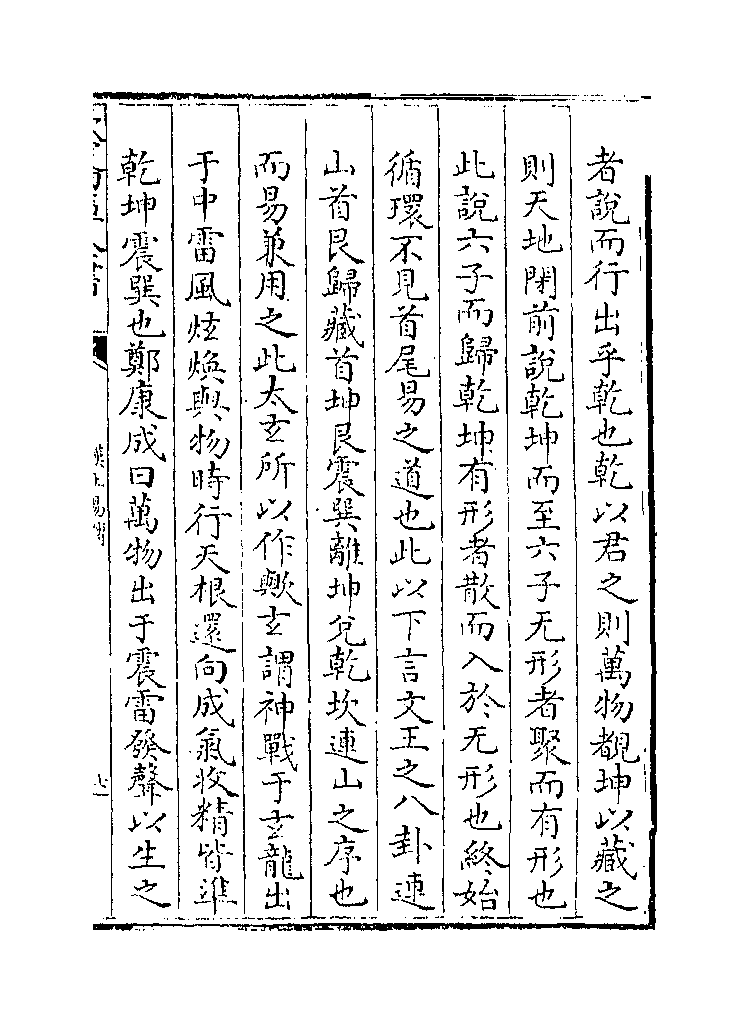 者說而行出乎乾也乾以君之則萬物覩坤以藏之
則天地閉前說乾坤而至六子无形者聚而有形也
此說六子而歸乾坤有形者散而入於无形也終始
循環不見首尾易之道也此以下言文王之八卦連
山首艮歸藏首坤艮震巽離坤兌乾坎連山之序也
而易兼用之此太𤣥所以作歟𤣥謂神戰于𤣥龍出
于中雷風炫煥與物時行天根還向成氣收精皆進
乾坤震巽也鄭康成曰萬物出于震雷發聲以生之
漢上易傳